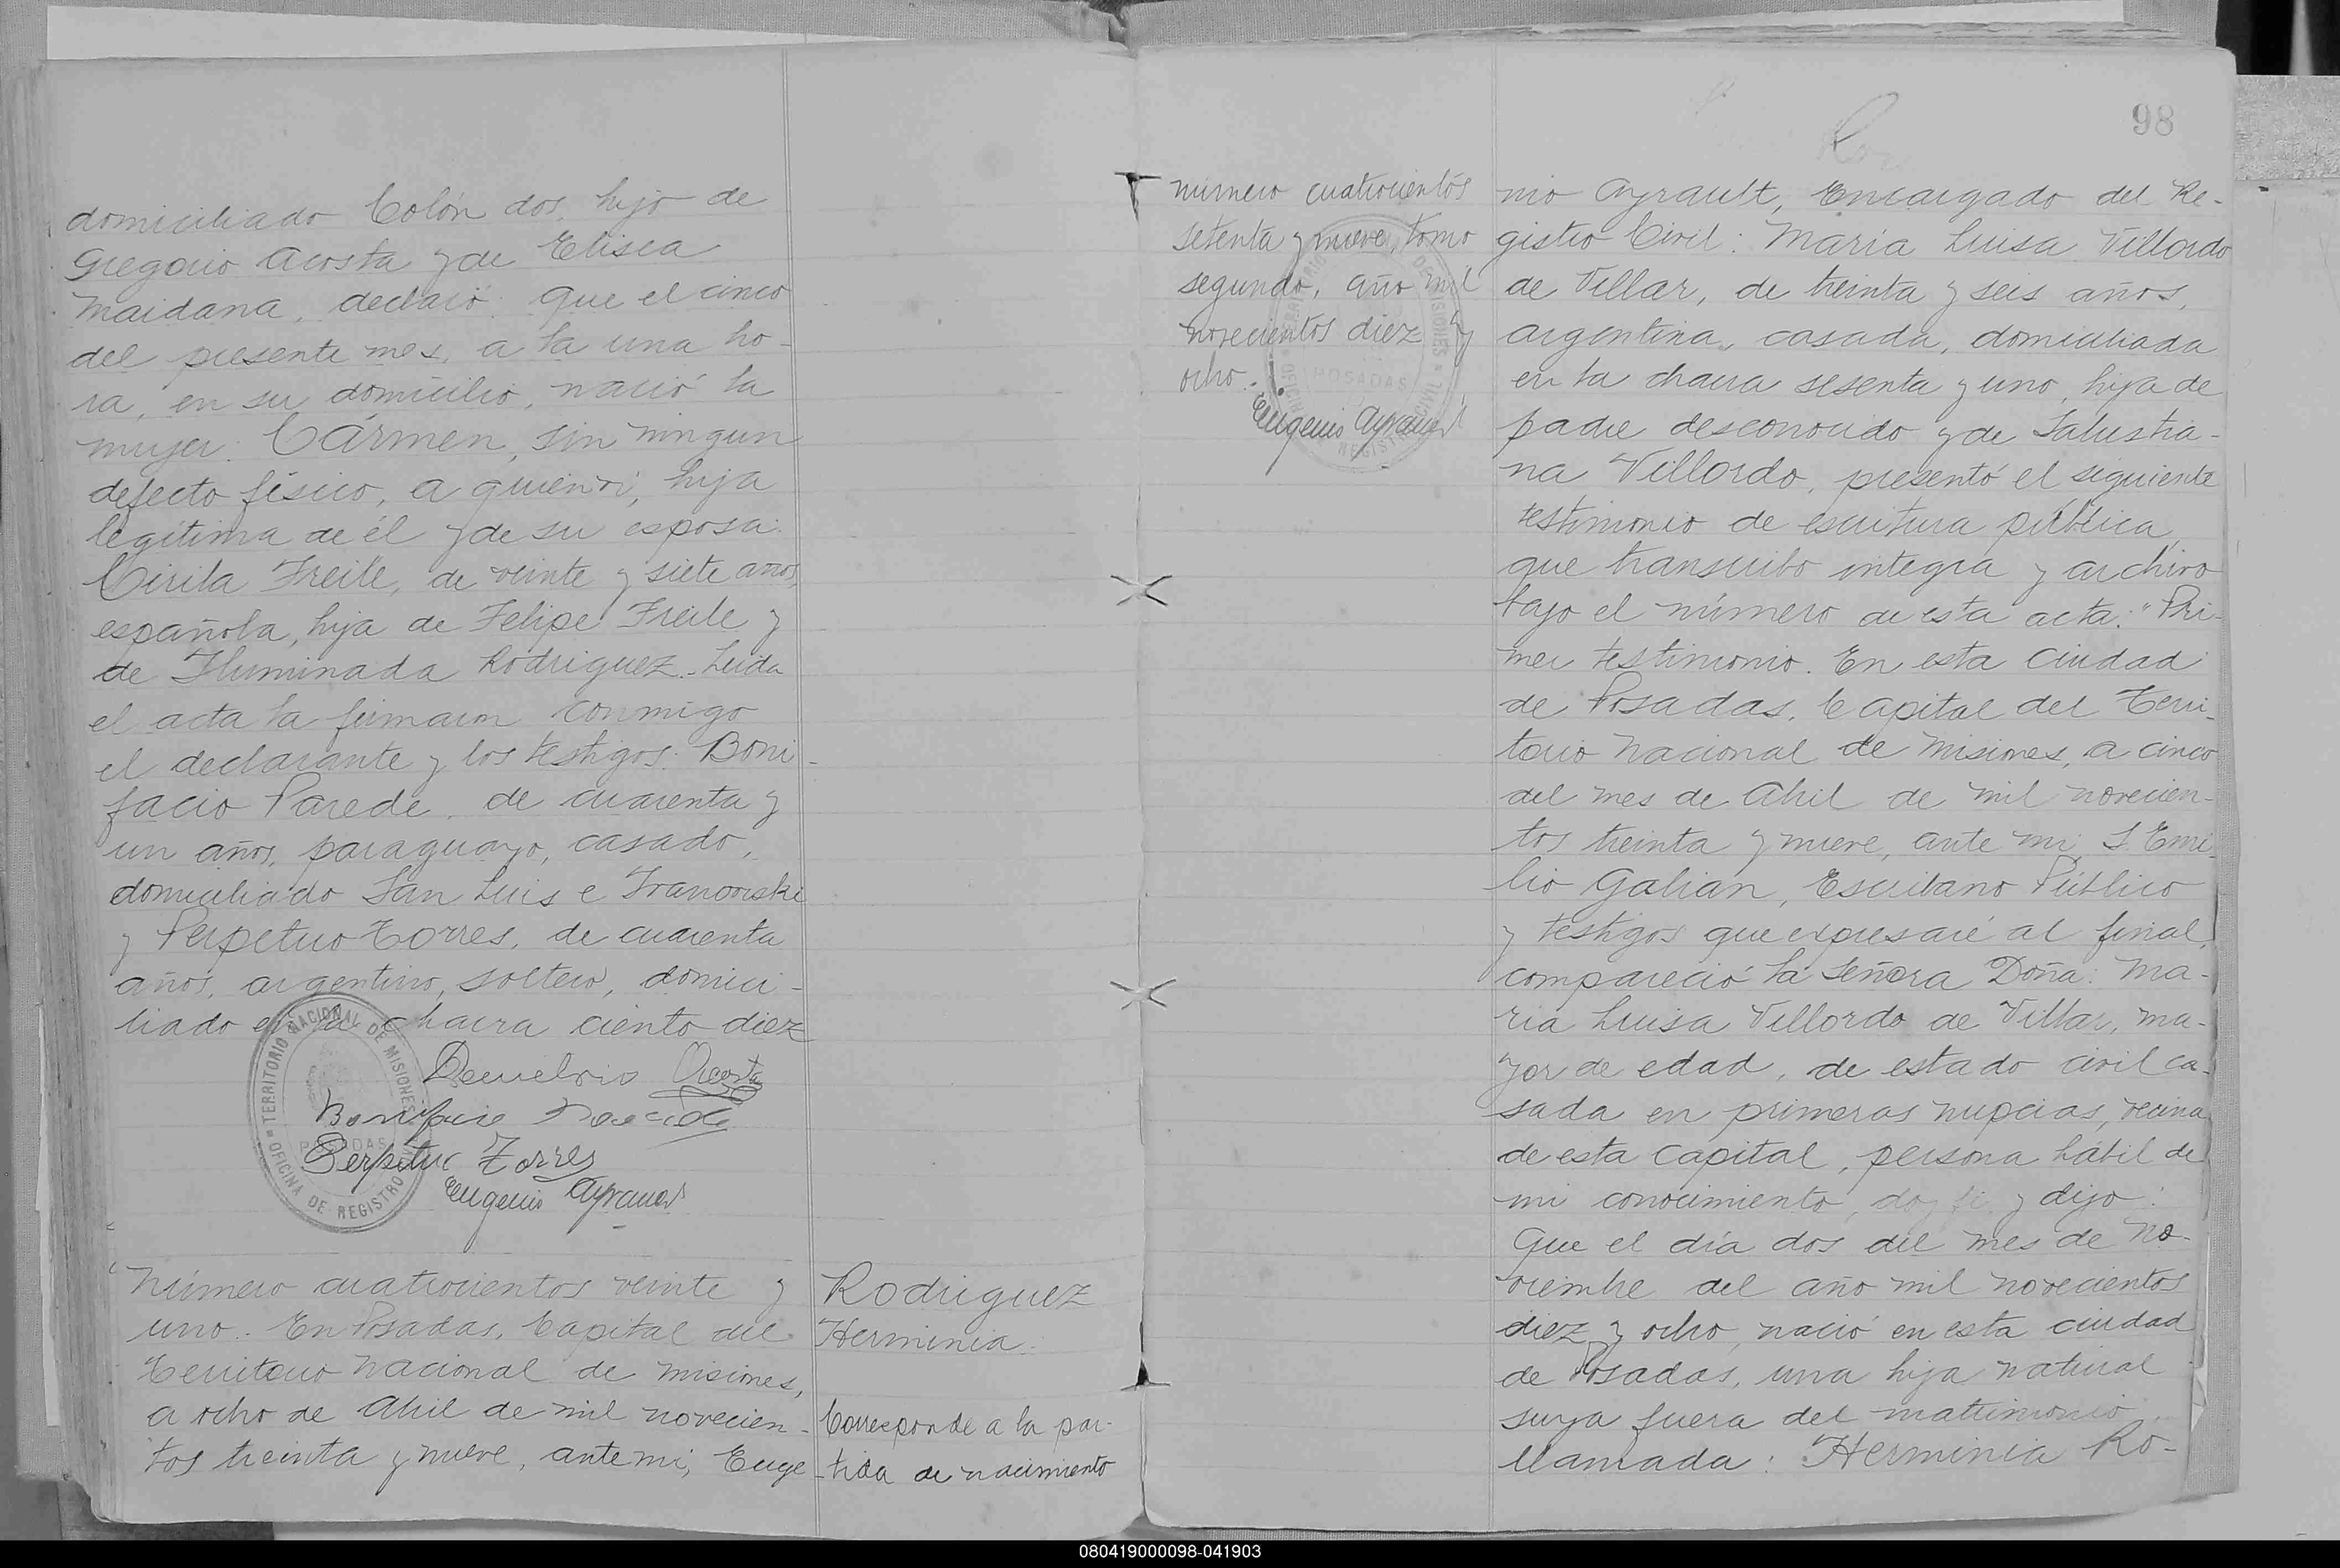 domiciliado Colón dos, hijo de
Gregorio Acosta y de Elisea
Maidana, declaró: Que el cinco
del presente mes, a la una ho-
ra, en su domicilio, nació la
mujer: Cármen, sin ningun
defecto físico, a quien ví, hija
legítima de él y de su esposa:
Cirila Freile, de veinte y siete años,
española, hija de Felipe Freile y
de Iluminada Rodriguez. Leida
el acta la firmaron conmigo
el declarante y los testigos: Boni-
facio Parede, de cuarenta y
un años, paraguayo, casado,
domiciliado San Luis e
y Perpetuo Torres, de cuarenta
años, argentino, soltero, domici-
liado en la chacra ciento diez
Demetrio Acosta
Bonifacio Parede
Perpetuo Torres
Eugenio Ayrault
TERRITORIO NACIONAL DE MISIONES
POSADAS
OFICINA DE REGISTRO CIVIL
Número cuatrocientos veinte y
uno. En Posadas, Capital del
Territorio Nacional de Misiones,
a ocho de Abril de mil novecien-
tos treinta y nueve, ante mi, Euge-
Rodriguez
Herminia.
Corresponde a la par-
tida de nacimiento
98
número cuatrocientos
setenta y nueve, tomo
segundo, año mil
novecientos diez y
ocho.
Eugenio Ayrault
TERRITORIO NACIONAL DE MISIONES
POSADAS
OFICINA DE REGISTRO CIVIL
nio Ayrault, Encargado del Re-
gistro Civil: María Luisa Villordo
de Villar, de treinta y seis años,
argentina, casada, domiciliada
en la chacra sesenta y uno, hija de
padre desconocido y de Salustia-
na Villordo, presentó el siguiente
testimonio de escritura pública,
que transcribo integra y archivo
bajo el número de esta acta: "Pri-
mer testimonio. En esta Ciudad
de Posadas, Capital del Terri-
torio Nacional de Misiones, a cinco
del mes de Abril de mil novecien-
tos treinta y nueve, ante mi, S. Emi-
lio Galian, Escribano Público
y testigos que expresaré al final,
compareció la Señora Doña: Ma-
ría Luisa Villordo de Villar, ma-
yor de edad, de estado civil ca-
sada en primeras nupcias, vecina
de esta Capital, persona hábil de
mi conocimiento, doy fé y dijo:
Que el día dos del mes de No-
viembre del año mil novecientos
diez y ocho, nació en esta ciudad
de Posadas, una hija natural
suya fuera del matrimonio,
llamada: Herminia Ro-
080419000098-041903